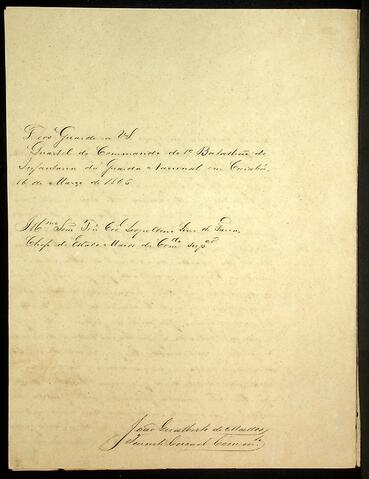 Deos Guarde a VS
Quartel do Commando do 1º Batalhão de
Infantaria da Guarda Nacional em Cuiabá,
16 de Março de 1865
Illmo Senr Tene Cel Leopoldino Lino de Faria
Chefe do Estado Maior do Comdo Supor
João Gualberto de Mattos
Tenente Coronel Comme